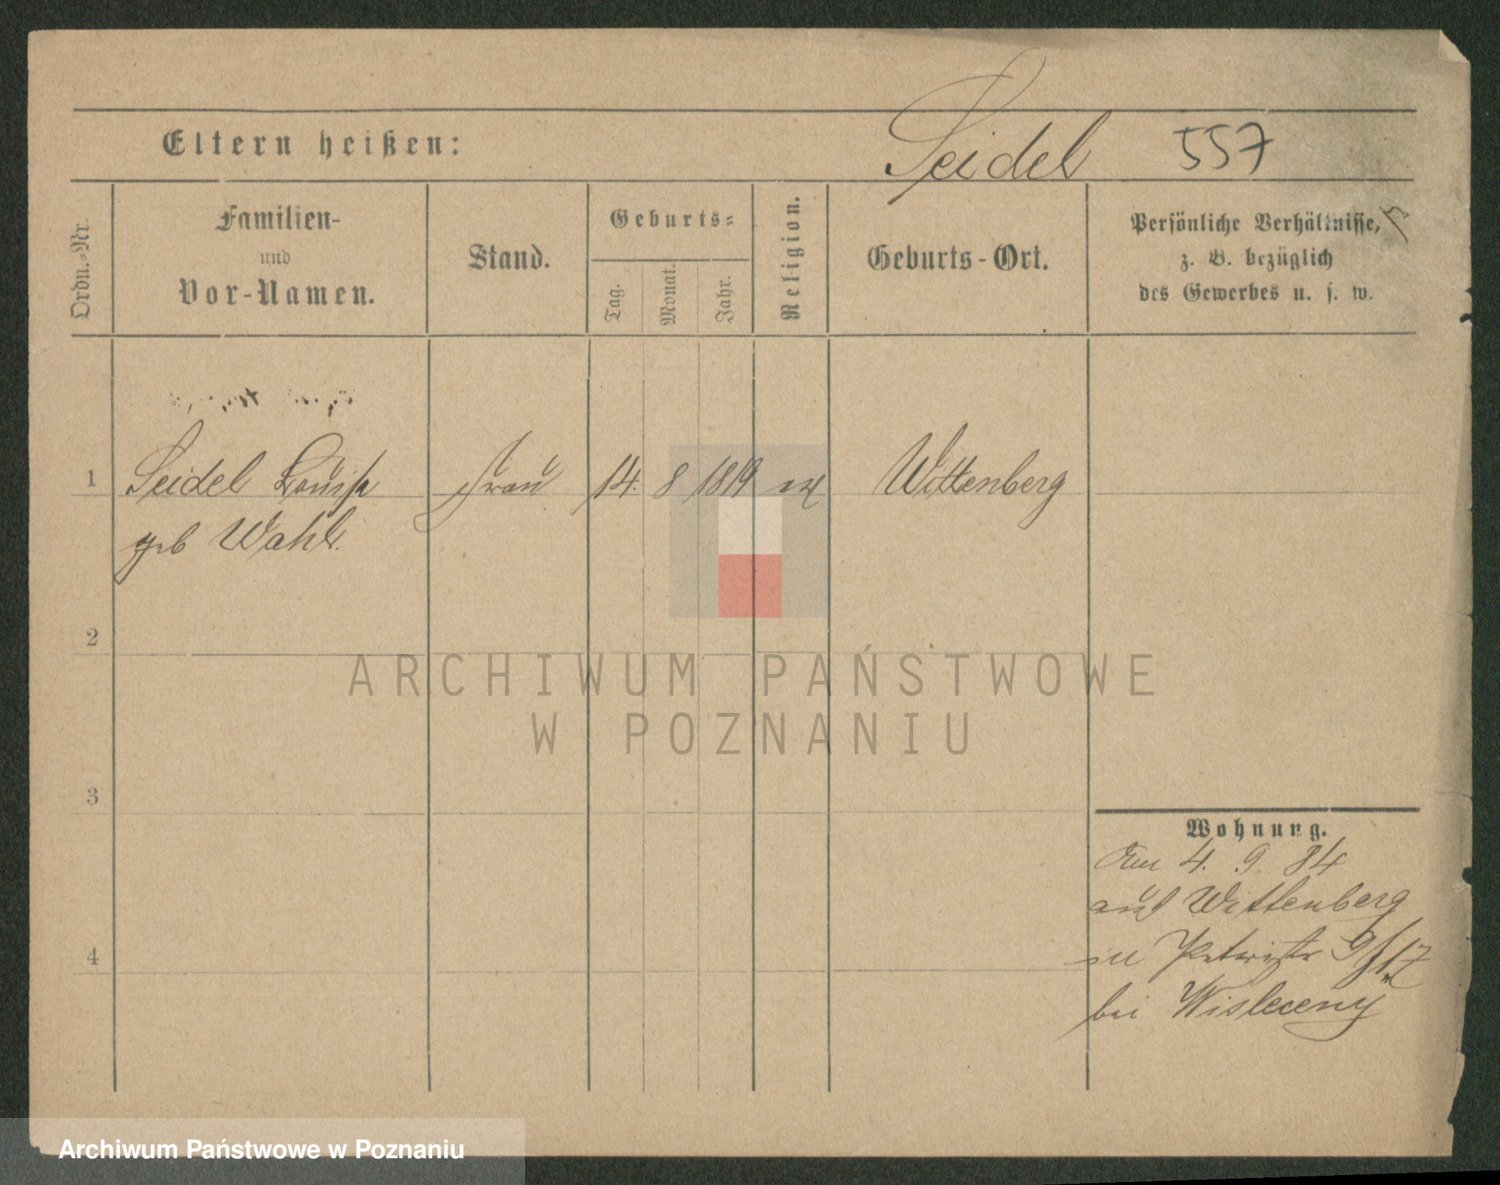 Eltern heißen:
Seidel 557
Ordn.-Nr.
Familien-
und
Vor-Namen.
Stand.
Geburts-
Tag.
Monat.
Jahr.
Religion.
Geburts-Ort.
Persönliche Verhältnisse,
z. B. bezüglich
des Gewerbes u. s. w.
1 Seidel Louise Frau 14. 8 1819 ev Wittenberg
geb Wahl.
2
3
4
Wohnung.
Am 4. 9. 84
aus Wittenberg
in Petristr
bei Wisleceny
ARCHIWUM PAŃSTWOWE
W POZNANIU
Archiwum Państwowe w Poznaniu